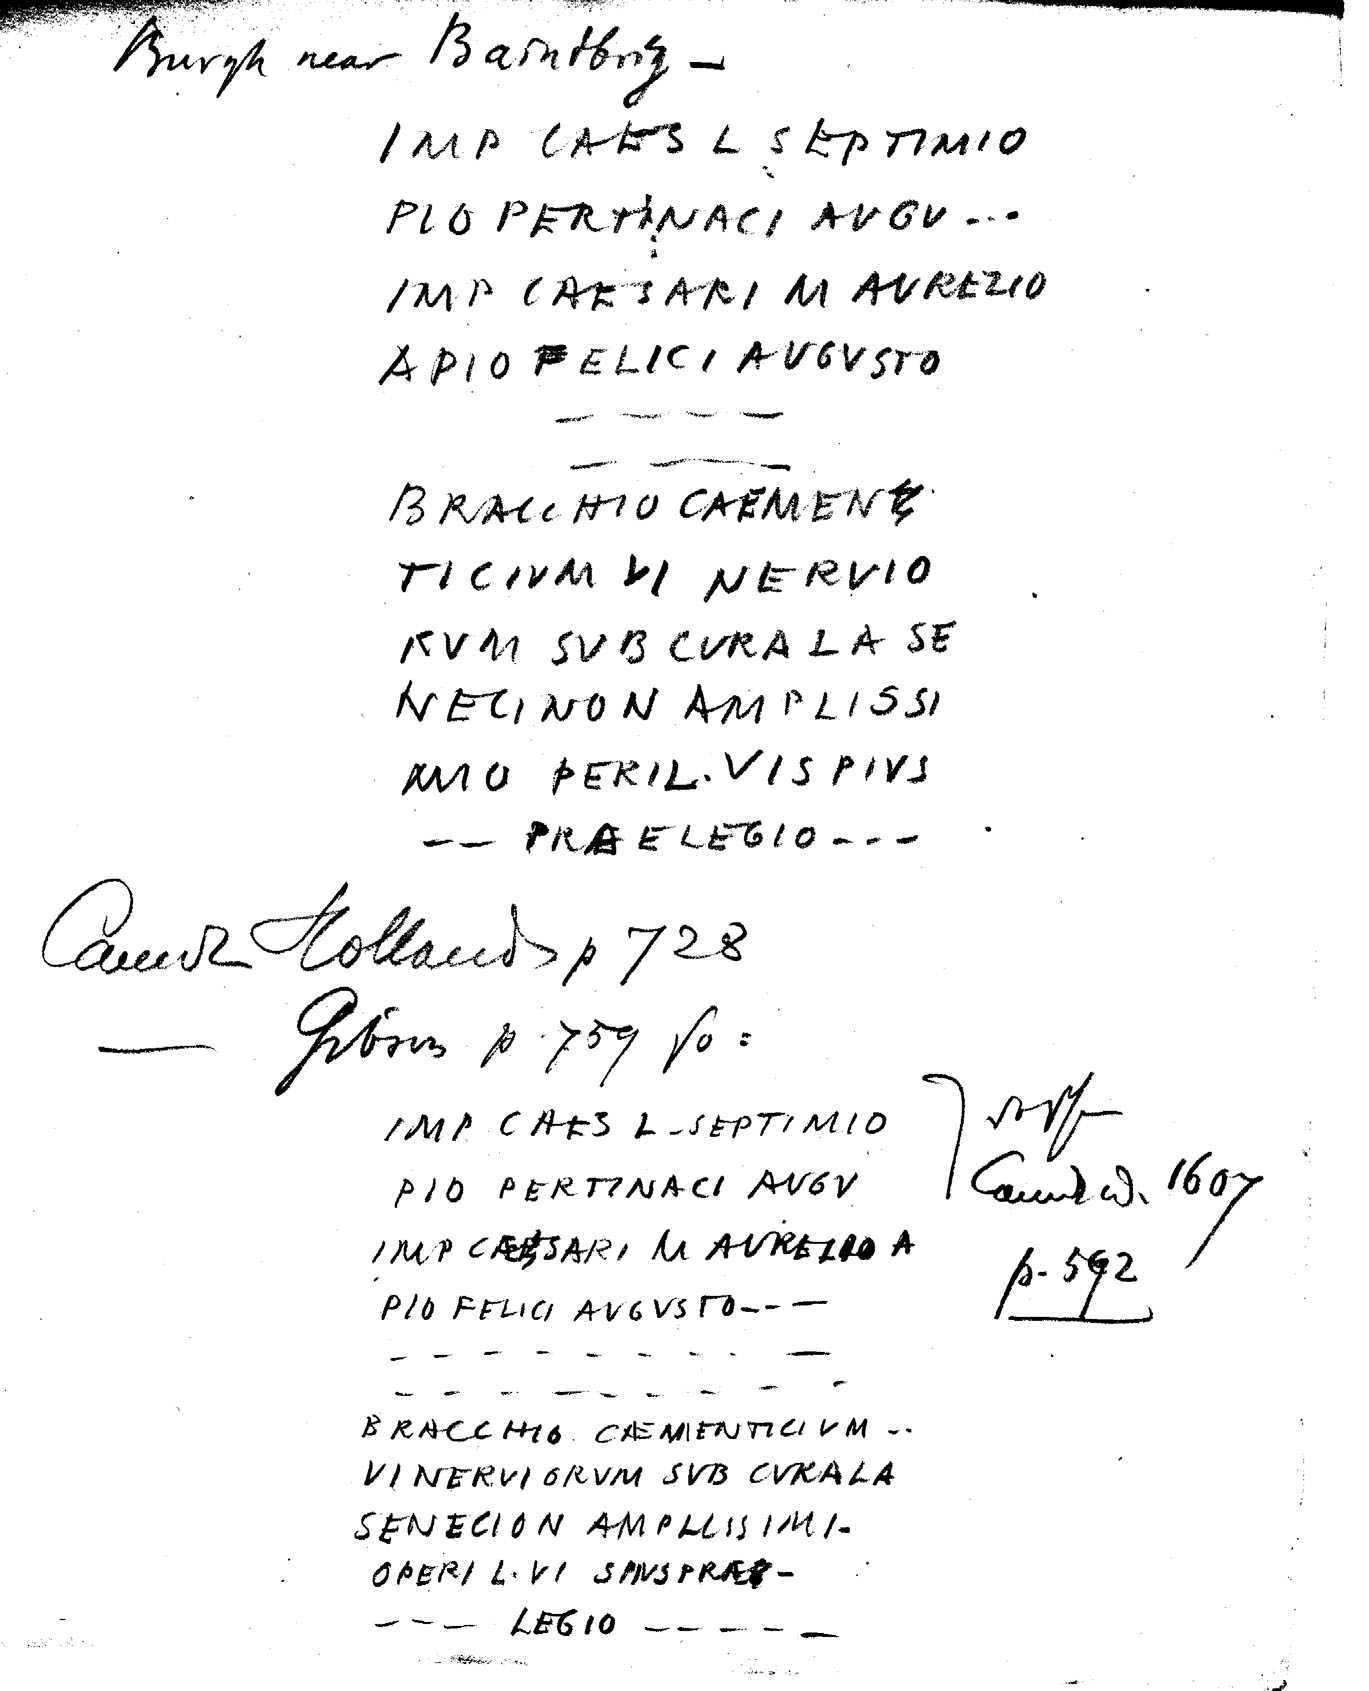 Burgh near Baintbrig —
IMP CAES L SEPTIMIO
PIO PERTINACI AVGV ---
IMP CAESARI M AVRELIO
A PIO FELICI AVGVSTO
— — — —
— — —
BRACCHIO CAEMEN
TICIVM VI NERVIO
RVM SVB CVRA L A SE
NECINON AMPLISSI
MO PERIL. VISPIVS
— — PRAE LEGIO ---
Camd Holland p 728
— Gibson p. 759 so =
IMP CAES L SEPTIMIO
PIO PERTINACI AVGV
IMP CAESARI M AVRELIO A
PIO FELICI AVGVSTO - - —
- - - - - - - - —
- - - — - - - -
BRACCHIO CAEMENTICIVM --
VI NERVIORVM SVB CVRA LA
SENECION AMPLISSIMI-
OPERI L. VI SPIVSPRAE -
- - — LEGIO - - - - —
Camd ed. 1607
p. 592